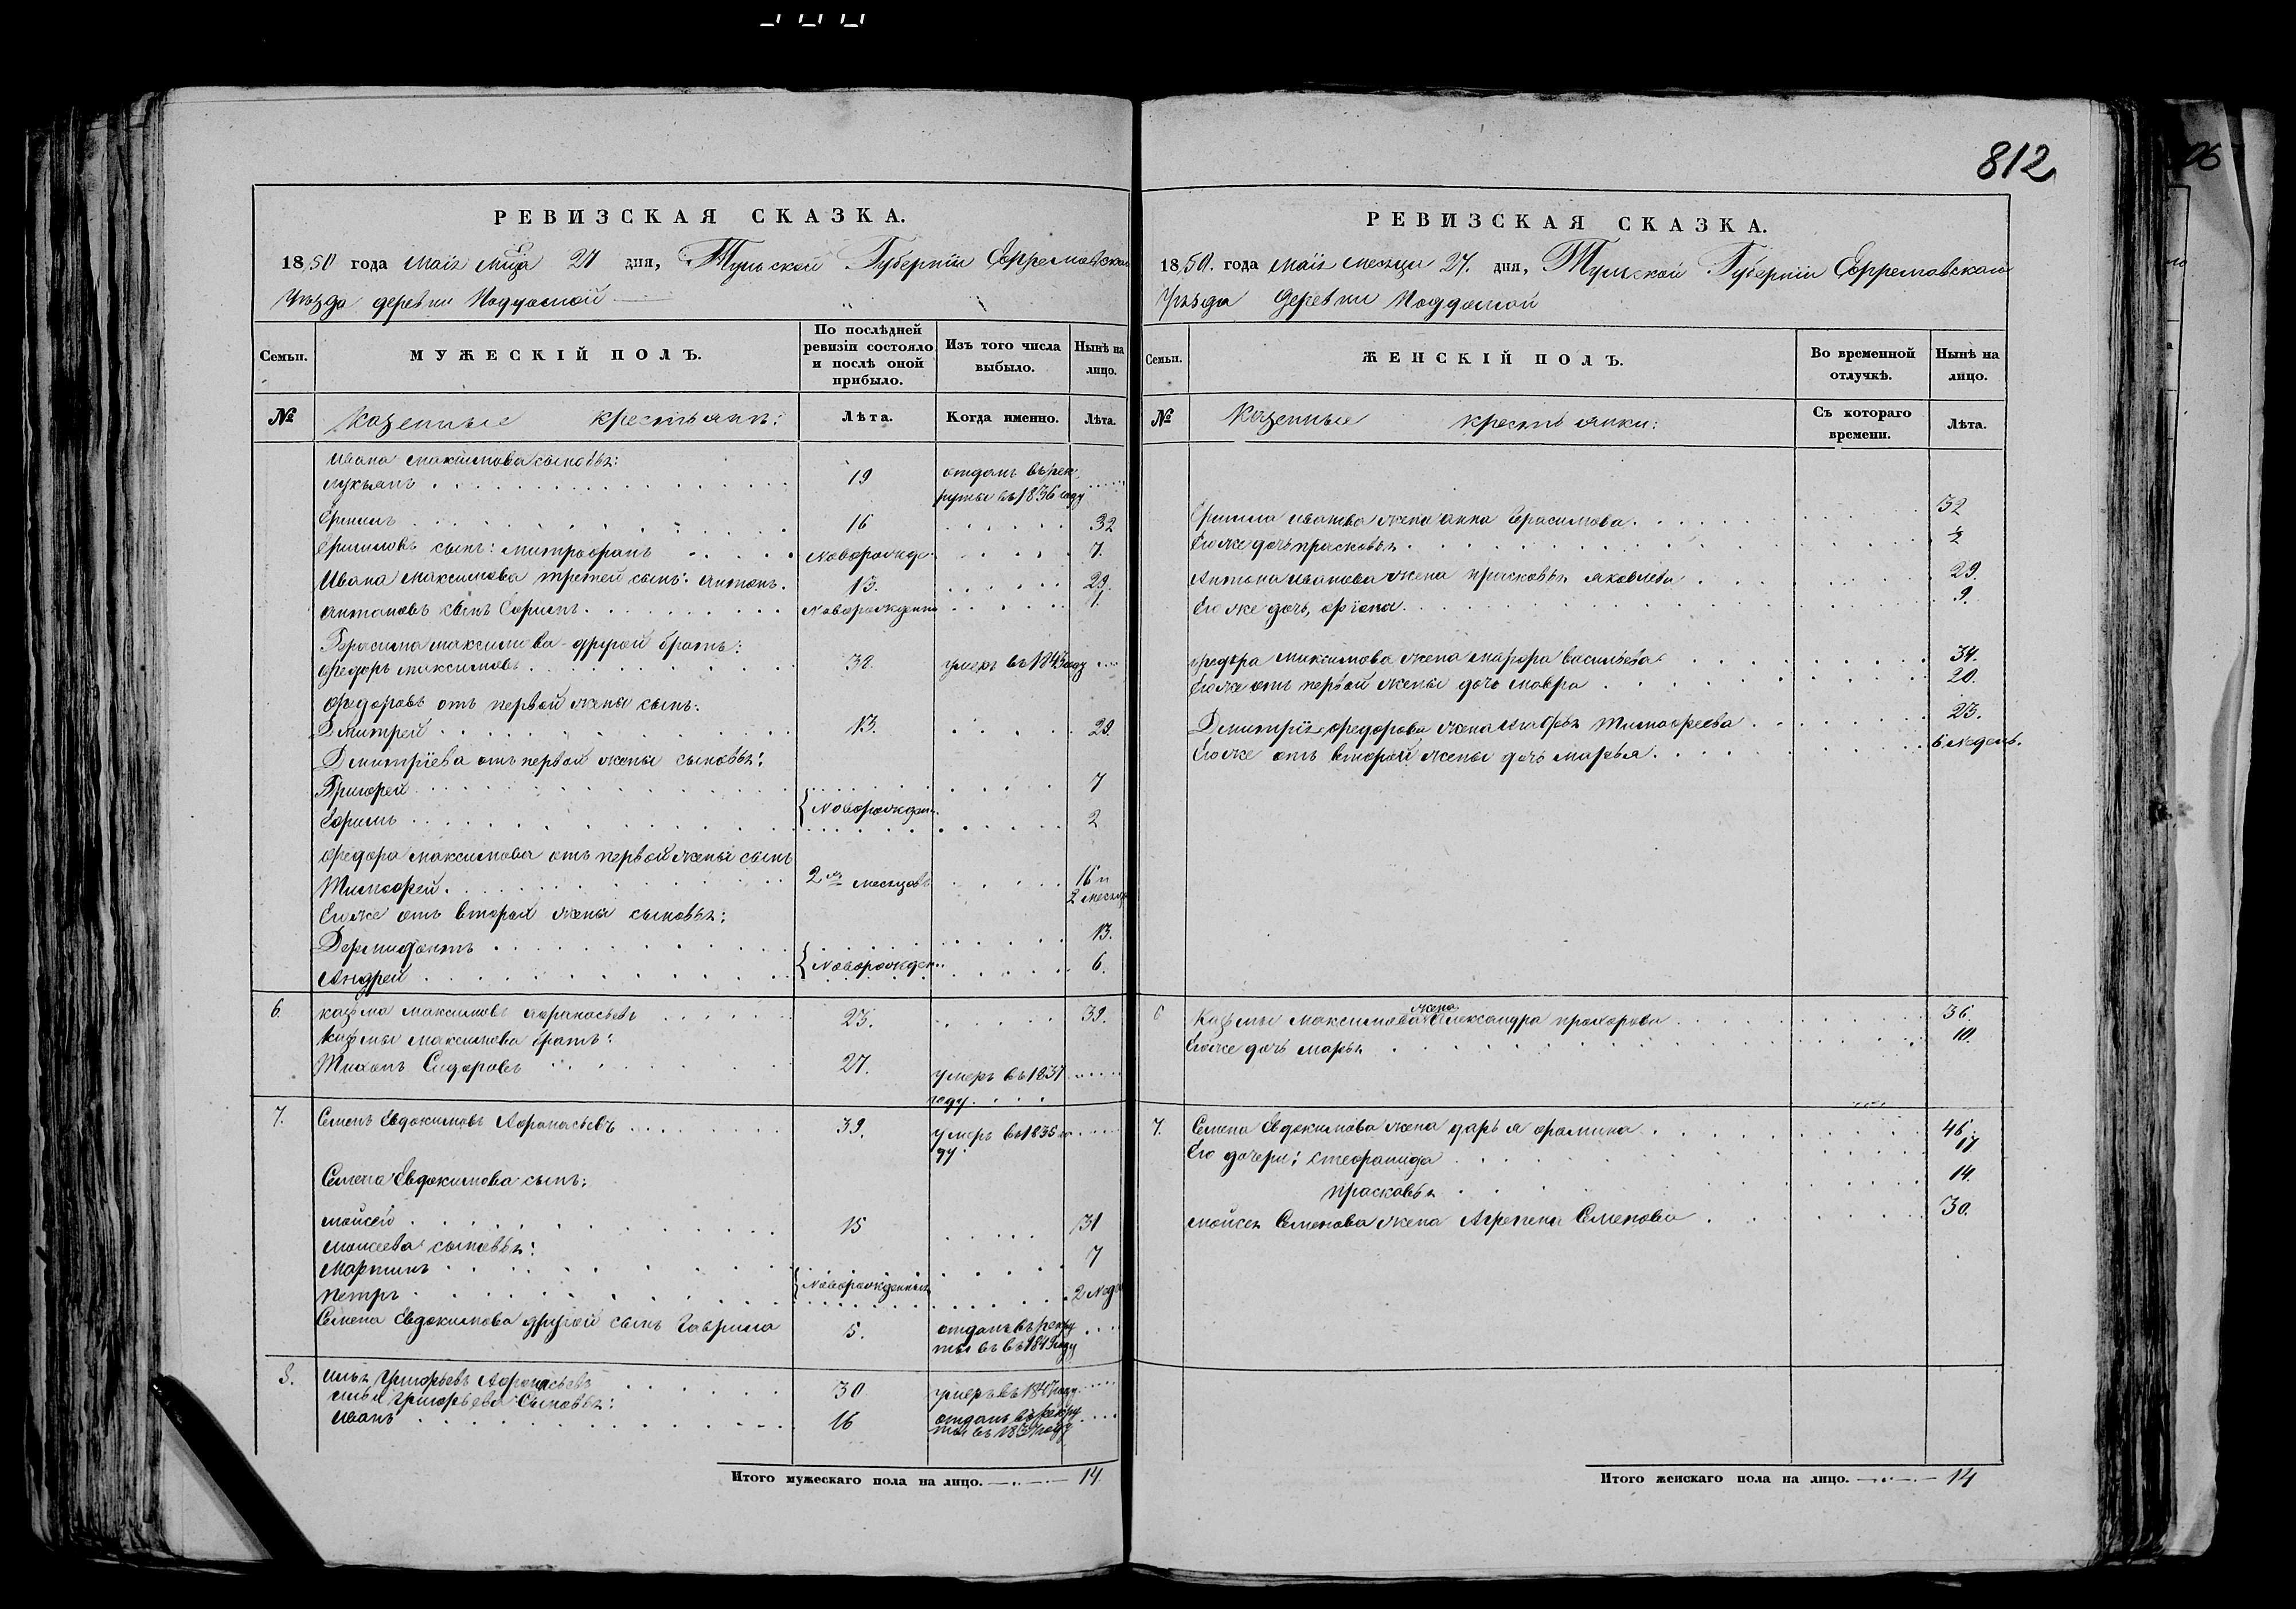 812
РЕВИЗСКАЯ СКАЗКА.
1850 года маія мца 27 дня, Тульской Губерніи Ефремовскаго
Уѣзда деревни Поддолгой
Семьи. МУЖЕСКІЙ ПОЛЪ. По послѣдней ревизіи состояло и послѣ оной прибыло. Изъ того числа выбыло. Нынѣ на лицо.
№ Казенные крестьяне: Лѣта. Когда именно. Лѣта.
Ивана максимова сыновья:
лукьянъ 19 отданъ въ рек
руты въ 1836 году
Ермилъ 16 32
Ермиловъ сынъ: митрофанъ новорожде 7.
Ивана Максимова третей сынъ: антонъ. 13. 29.
антоновъ сынъ Ефримъ новорожденны 1.
Герасима максимова другой братъ:
федоръ максимовъ 32. умеръ въ 1843 году
федоровъ отъ первой жены сынъ:
Дмитрей 13. 29.
Дмитріева отъ первой жены сыновья:
Григорей 7
новорожден.
Ефимъ 2
федора максимова отъ первой жены сынъ
Тимофей 2хъ месяцовъ 16 и
2 месяца
Его же отъ второй жены сыновья:
Дормидонтъ 13.
новорожден..
Андрей 6.
6. казьма максимовъ афанасьевъ 23. 39.
казьмы максимова братъ:
Тихонъ Сидоровъ 27. умеръ въ 1837
году
7. Семенъ Евдокимовъ Афанасьевъ 39. умеръ въ 1835 го
ду
Семена Евдокимова сынъ:
мойсей 15 31
моисеева сыновья:
Мартинъ 7
новорожденныя
петръ 2 неде
Семена Евдокимова другой сынъ Гаврила 5. отданъ въ рекру
ты въ 1849 году
8. илья григорьевъ Афонасьевъ 30 умеръ въ 1847 году
ильи григорьева сыновья:
иванъ 16 отданъ въ рекру
ты въ году
Итого мужескаго пола на лицо. 14
РЕВИЗСКАЯ СКАЗКА.
1850. года маія месяца 27. дня, Тульской Губерніи Ефремовскаго
Уѣзда деревни Поддолгой
Семьи. ЖЕНСКІЙ ПОЛЪ. Во временной отлучкѣ. Нынѣ на лицо.
№ Казенные крестьянки: Съ котораго времени. Лѣта.
Ермила иванова жена анна Герасимова. 32
Его же дочь прасковья ½
Антона иванова жена прасковья яковлева 29.
Его же дочь, 9.
федора максимова жена марфа васильева 34.
Его же отъ первой жены дочь мавра 20.
Дмитрія федорова жена Тимофеева 23.
Его же отъ второй жены дочь марья. 6 недель.
6 Казьмы максимова жена Александра прохорова 36.
Его же дочь марья 10.
7. Семена Евдокимова жена дарья фомина 46.
Его дочери: Стефанида 17
прасковья 14.
мойсея Семенова жена Агрепена Семенова 30.
Итого женскаго пола на лицо. 14